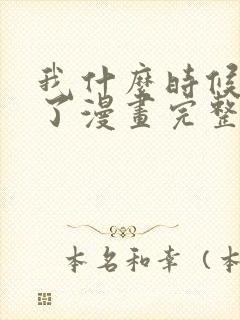 我什麼時候
了漫畫完整
本名和幸（本